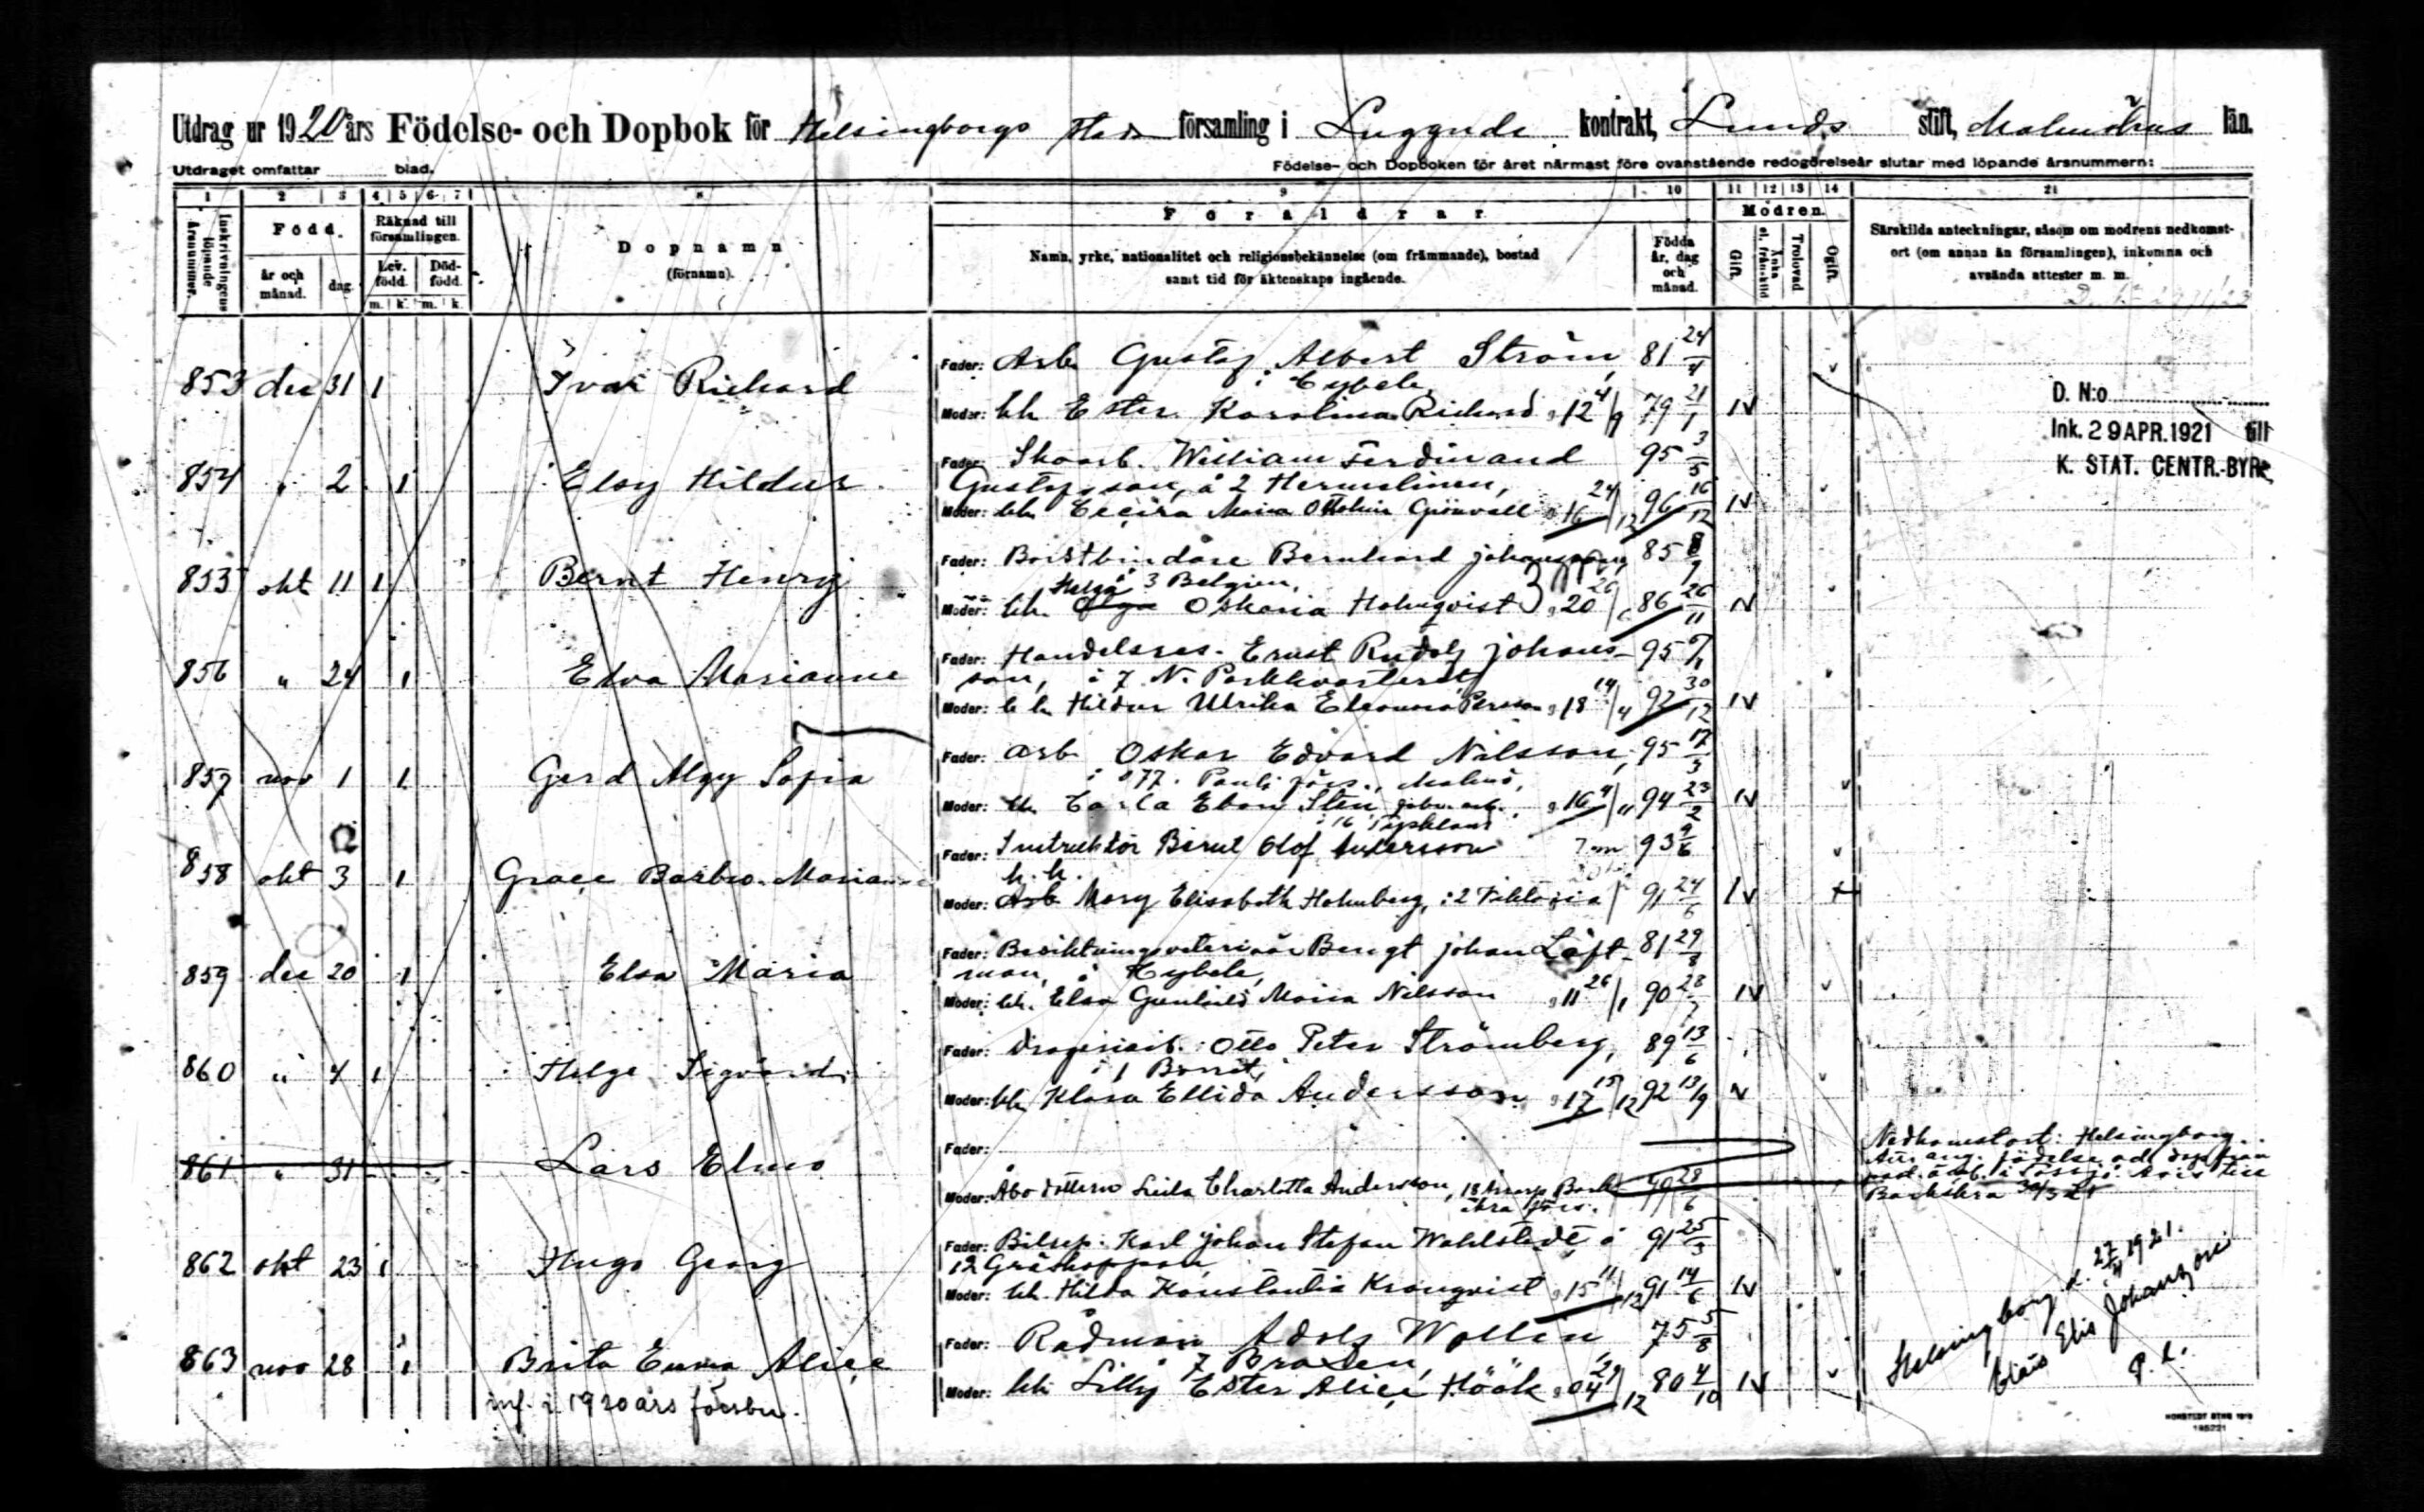 Utdrag ur 1920 års Födelse- och Dopbok för Helsingborgs stads församling i Luggude kontrakt, Lunds stift, Malmöhus län.
Utdraget omfattar blad. Födelse- och Dopboken för året närmast före ovanstående redogörelseår slutar med löpande årsnummern:
1 2 3 4 5 6 7 8 9 10 11 12 13 14 21
Inskrivningens löpande årsnummer.
Född.
år och månad.
dag.
Räknad till församlingen.
Lev. född.
Död- född.
m. k. m. k.
Dopnamn
(förnamn).
Föräldrar
Namn, yrke, nationalitet och religionsbekännelse (om främmande), bostad
samt tid för äktenskaps ingående.
Födda år, dag och månad.
Modren.
Gift.
Änka el. frånskild
Trolovad
Ogift.
Särskilda anteckningar, såsom om modrens nedkomst-
ort (om annan än församlingen), inkomna och
avsända attester m. m.
D. N:o
Ink. 29 APR. 1921 till
K. STAT. CENTR.-BYR
Fader: Arb. Gustaf Albert Ström, 81 24/4
853 dec 31 1 Ivar Richard
i Cybele
Moder: hh Ester Karolina Richard g 12 4/9 79 21/1
Fader: Skoarb. William Ferdinand 95 3/5
854 " 2 1 Elsy Hildur
Gustafsson, å 2 Hermelinen,
Moder: hh Maria Grönvall g 16 24/12 96 16/12
Fader: Borstbindare Bernhard 85
855 okt 11 1 Bernt Henry
Helga 3 Belgien,
Moder: hh. Olga Oskaria Holmqvist g 20 86 26/11
Fader: Handelsres. Ernst Rudolf Johans- 95
856 " 24 1 Elva Marianne
son, i 7 N. Parkkvarteret
Moder: hh Hildur Ulrika Eleonora Persson g 18 14/4 92 30/12
Fader: Arb Oskar Edvard Nilsson, 95 17/3
857 nov 1 1 Gerd Algy Sofia
i 77. Pauli förs., Malmö,
Moder: hh Carla Ebon Sten g 16 4/11 94 23/2
Fader: Instruktör Bernt Olof Andersson 93 9/6
858 okt 3 1 Grace Barbro Marianne
h.h.
Moder: Arb Mary Elisabeth Holmberg, i 2 Viktoria 91 24/6
Fader: Besiktningsveterinär Bengt Johan Löft- 81 29/8
859 dec 20 1 Elsa Maria
man, i Cybele,
Moder: hh. Elsa Gunhild Maria Nilsson g 11 26/1 90 28/7
Fader: Otto Peter Strömberg, 89 13/6
860 " 4 1 Helge Sigvard
i 1 Borret,
Moder: hh Klara Ellida Andersson g 17 15/12 92 13/9
Fader:
861 " 31 Lars Elmo
Moder: Charlotta Andersson, 90 28/6
Nedkomstort: Helsingborg.
Fader: Karl Johan Stefan Wahlstedt å 91 25/3
862 okt 23 1 Hugo Georg
12 Gräshoppan,
Moder: hh. Hilda Konstantia Kronqvist g 15 11/12 91 14/6
Fader: Rådman Adolf Wollin 75 5/8
863 nov 28 1 Brita Emma Alice
7 Braxen,
Moder: hh Lilly Ester Alice Höök g 04 29/12 80 4/10
inf. i 1920 års förbn.
Helsingborg d. 27/4 1921.
Elis Johanzon
P. L.